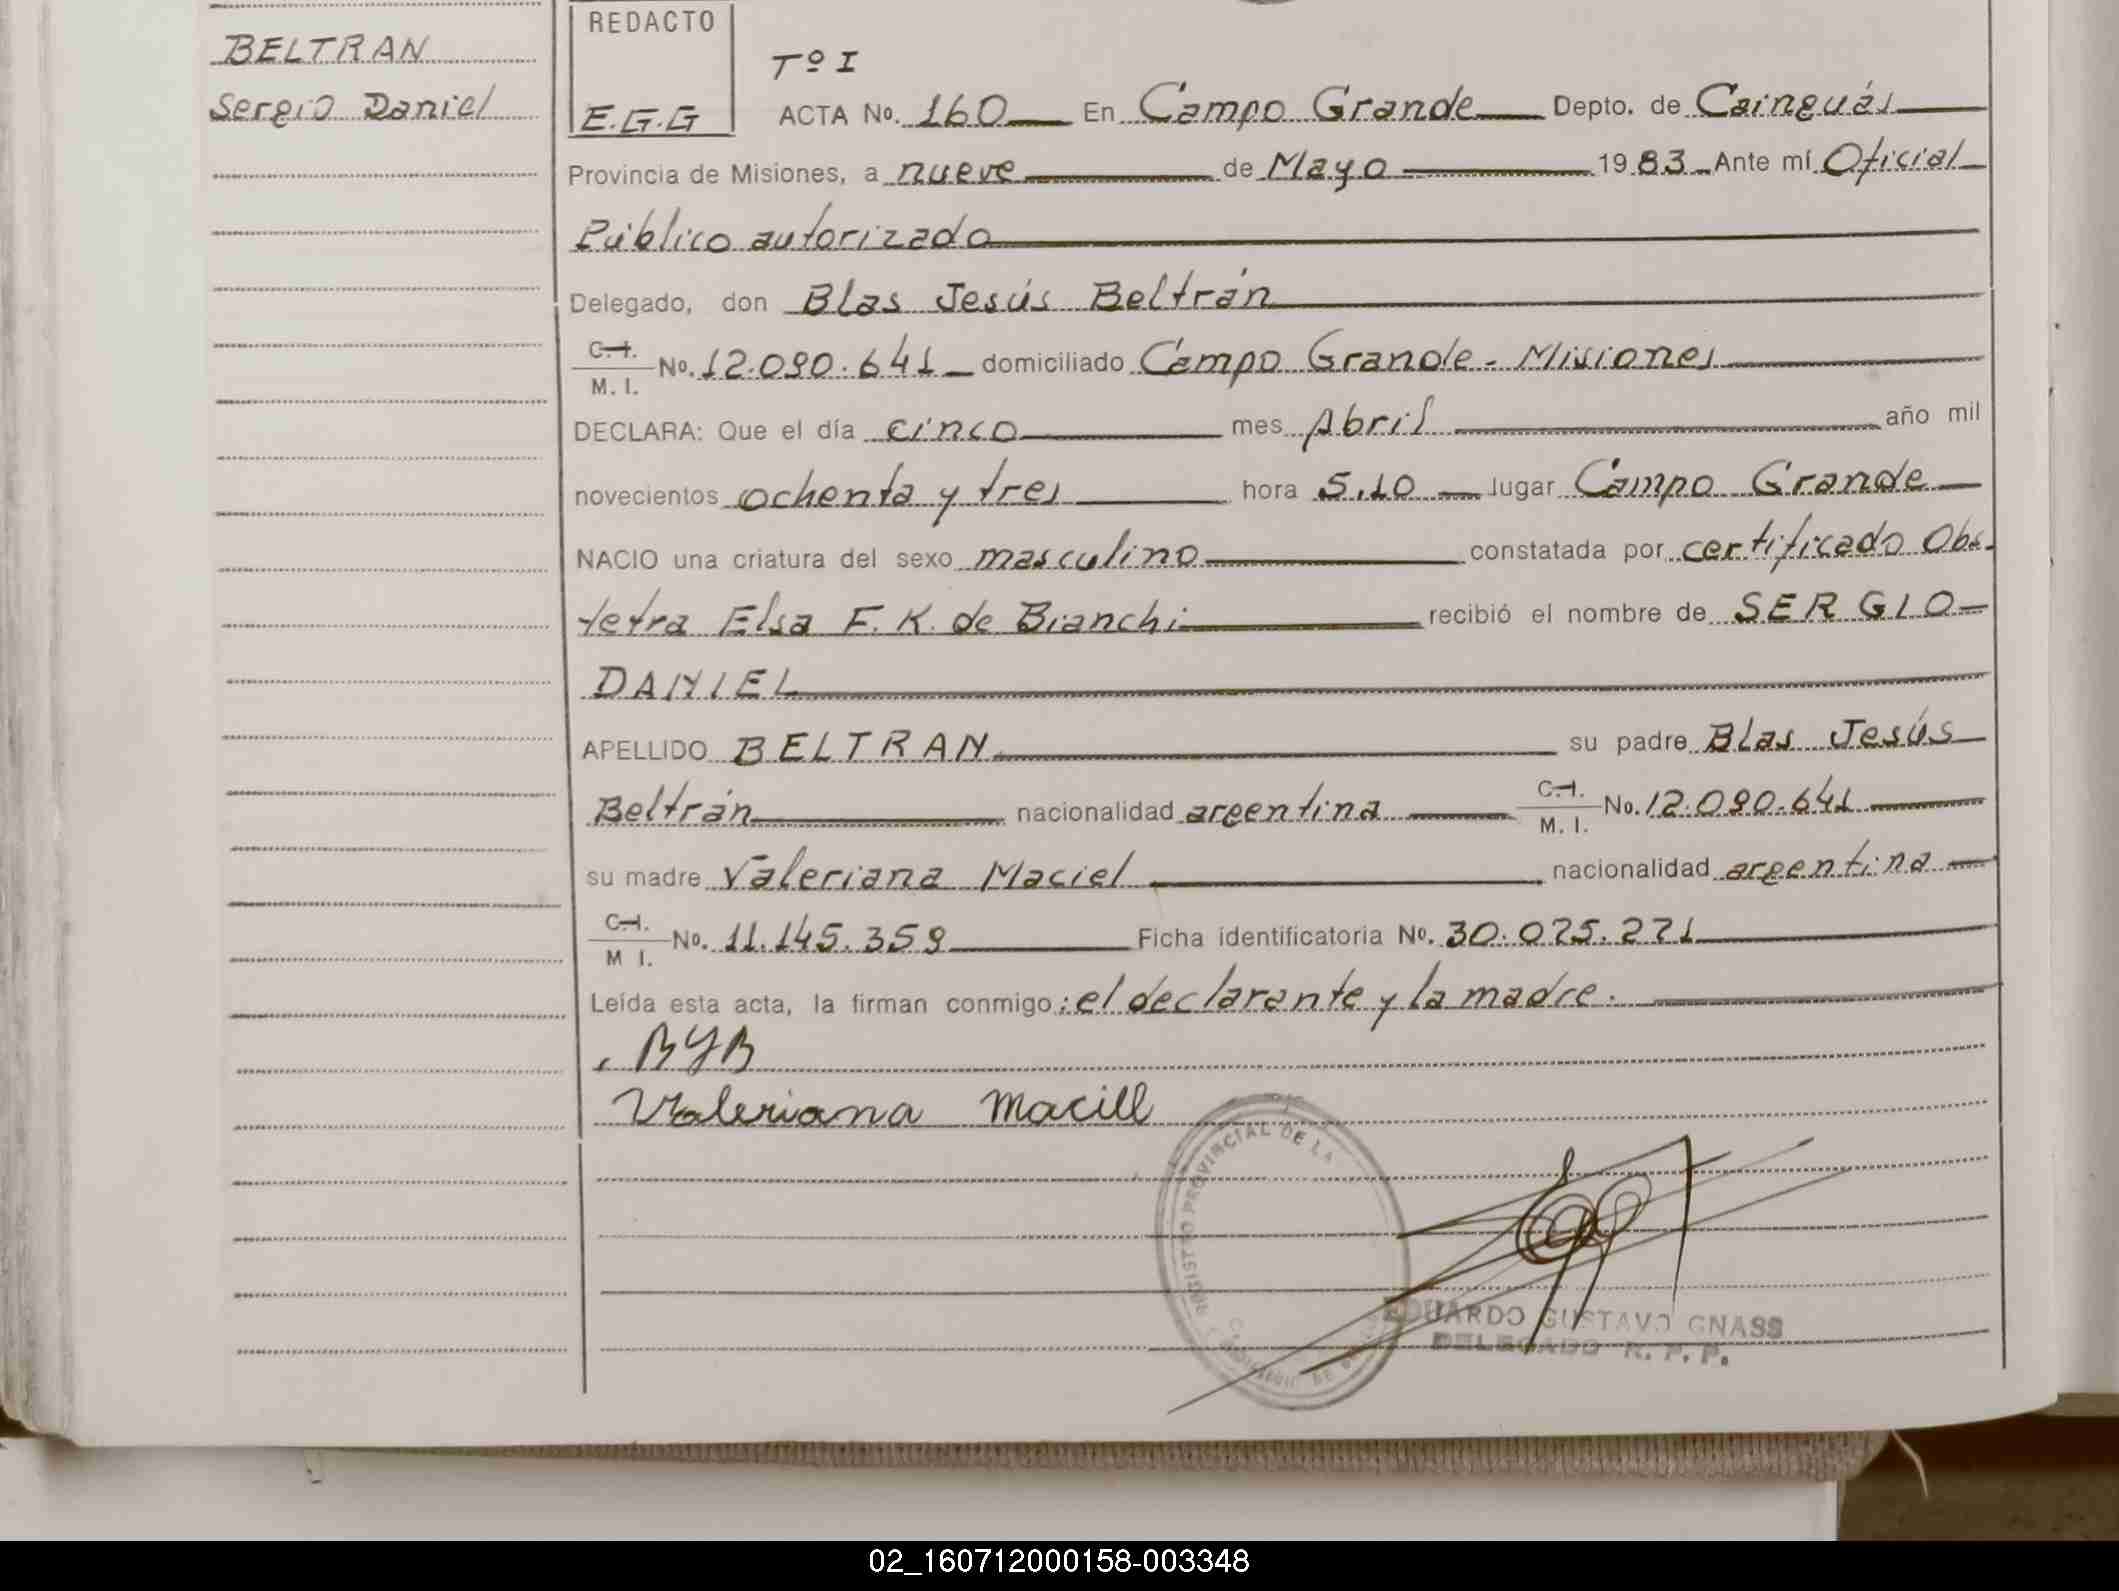 BELTRAN
Sergio Daniel
REDACTO
E.G.G
Tº I
ACTA Nº. 160 En Campo Grande Depto. de Cainguás
Provincia de Misiones, a nueve de Mayo 1983 Ante mí Oficial
Público autorizado
Delegado, don Blas Jesús Beltrán
C.I. M. I. No. 12.090.641 domiciliado Campo Grande - Misiones
DECLARA: Que el día cinco mes Abril año mil
novecientos ochenta y tres hora 5.10 lugar Campo Grande
NACIO una criatura del sexo masculino constatada por certificado Obs-
tetra Elsa F. K. de Bianchi recibió el nombre de SERGIO
DANIEL
APELLIDO BELTRAN su padre Blas Jesús
Beltrán nacionalidad argentina C.I. M. I. No. 12.090.641
su madre Valeriana Maciel nacionalidad argentina
C.I. M I. No. 11.145.359 Ficha identificatoria Nº. 30.075.271
Leída esta acta, la firman conmigo: el declarante y la madre.
BJB
Valeriana Maciel
REGISTRO PROVINCIAL DE LA
EDUARDO GUSTAVO GNASS
DELEGADO R. P. P.
02_160712000158-003348